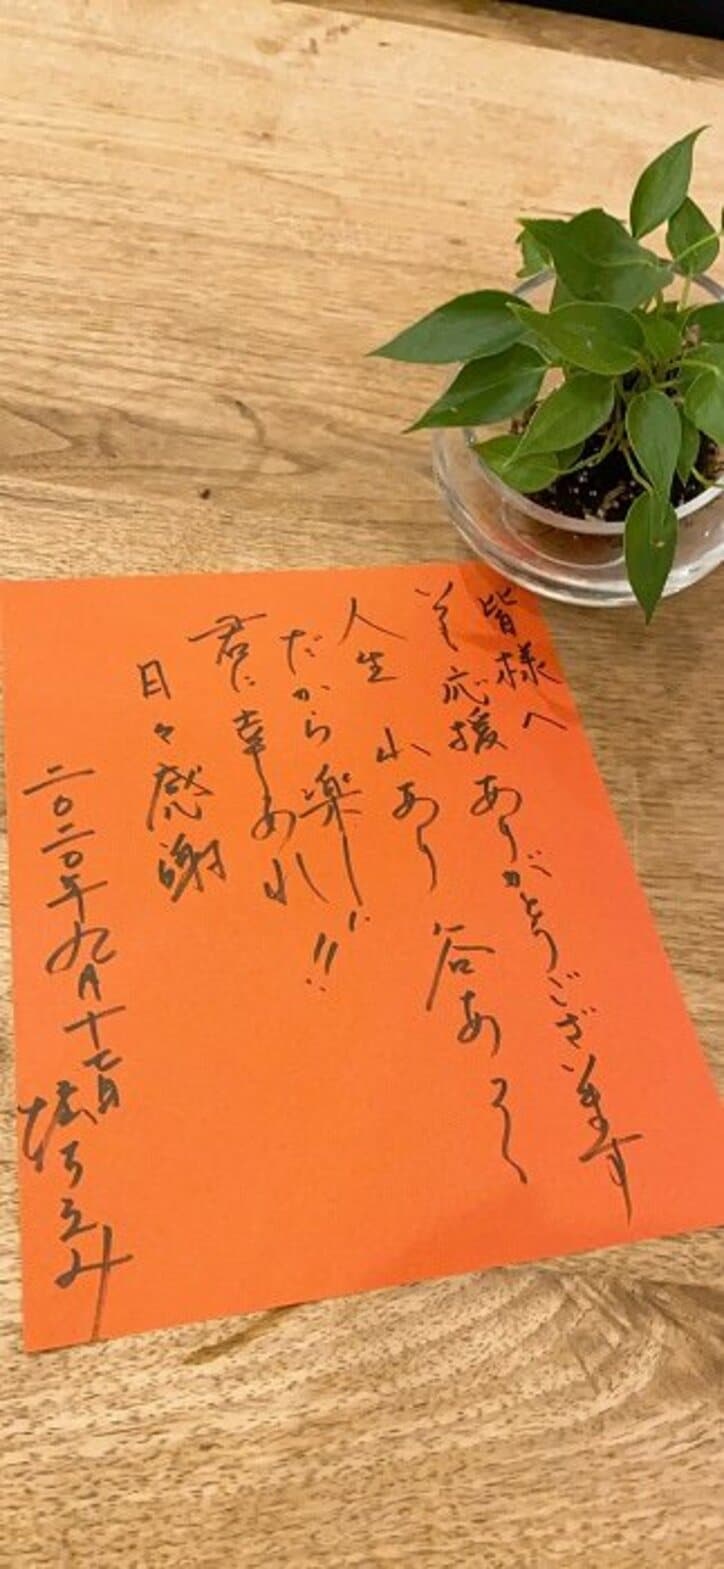 皆様へ
いつも応援ありがとうございます
人生 山あり 谷あり
だから楽しい!!
君に幸あれ
日々感謝
二〇二〇年九月十七日
堀ちえみ